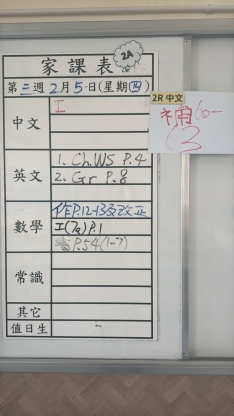 家課表
2A
第三週2月5日(星期四)
中文
工
2R 中文
補
英文
1. Ch.WS P.4
2. Gr P.8
數學
作P.12-13及改正
工(7a)P.1
P.54(1-7)
常識
其它
值日生